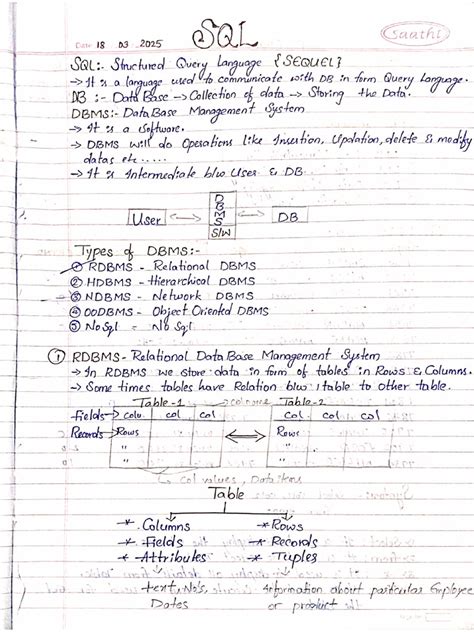 Date 18 03 2025
SQL
Saathi
SQL:- Structured Query Language {SEQUEL}
→ It is a language used to communicate with DB in form Query Language.
DB :- DataBase → Collection of data → Storing the Data.
DBMS:- DataBase Management System
→ It is a Software.
→ DBMS will do Operations like Insertion, Updation, delete & modify
datas etc.....
→ It is Intermediate b/w User & DB
User
DBMS
S/W
DB
Types of DBMS:-
① RDBMS - Relational DBMS
② HDBMS - Hierarchical DBMS
③ NDBMS - Network DBMS
④ OODBMS - Object Oriented DBMS
⑤ NoSql = No Sql
① RDBMS - Relational DataBase Management System
→ In RDBMS we store data in form of tables in Rows & Columns.
→ Some times tables have Relation b/w 1 table to other table.
Table-1 → col name Table-2
Fields→ colu. col col col. col col
Records→ Rows Rows
" "
" "
→ col values, Data items
Table
* Columns * Rows
* Fields * Records
* Attributes * Tuples
text, No's, information about particular Employee
Dates or product